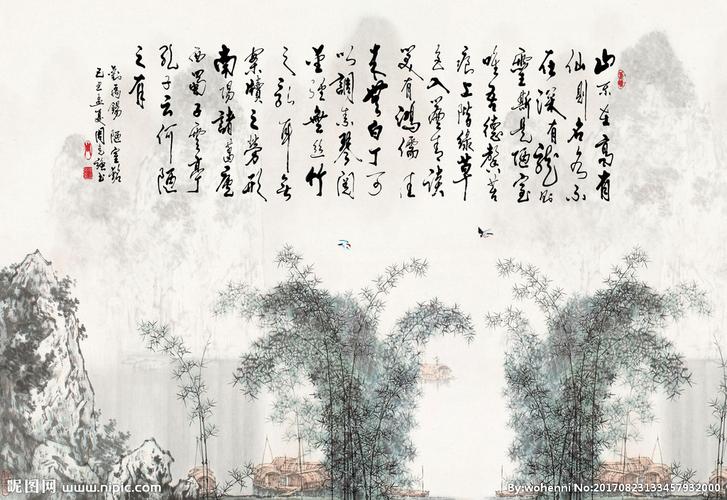 山不在高有
仙則名水不
在深有龍則
靈斯是陋室
唯吾德馨苔
痕上階綠草
色入簾青談
笑有鴻儒往
來無白丁可
以調素琴閱
金經無絲竹
之亂耳無
案牘之勞形
南陽諸葛廬
西蜀子雲亭
孔子云何陋
之有
劉禹錫 陋室銘
己丑孟夏周
昵图网 www.nipic.com
By:wohenni No:20170823133457932000